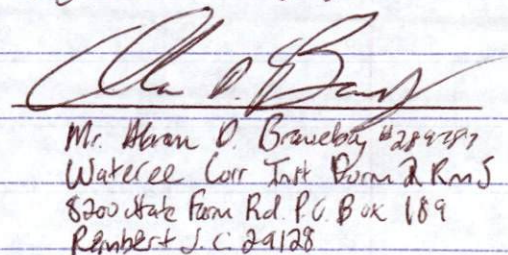 Mr. D. Braveboy
Wateree Corr Inst Dorm 2 Rm 5
8200 State Farm Rd. P.O. Box 189
Rembert S.C. 29128